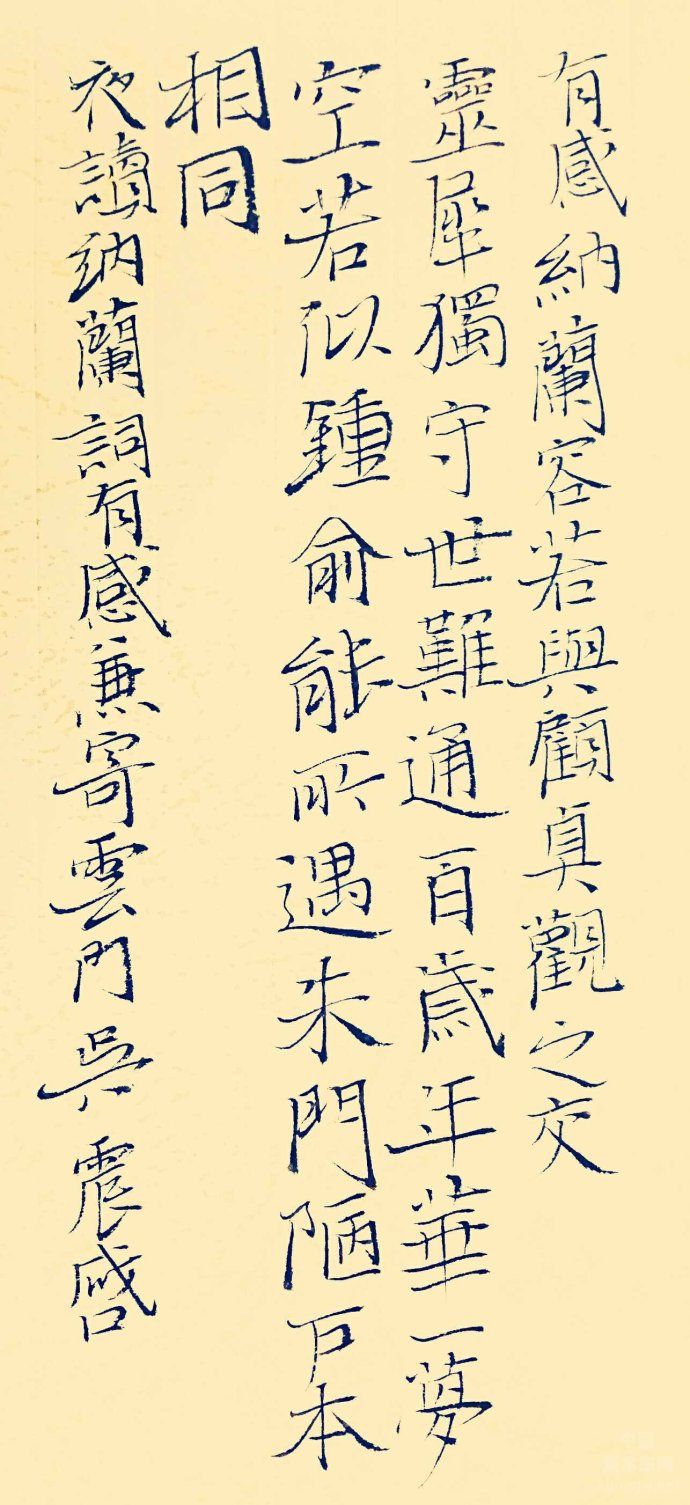 有感納蘭容若與顧貞觀之交
靈犀獨守世難通百歲年華一夢
空若似鍾俞能所遇朱門陋戶本
相同
夜讀納蘭詞有感兼寄雲門吳震啓